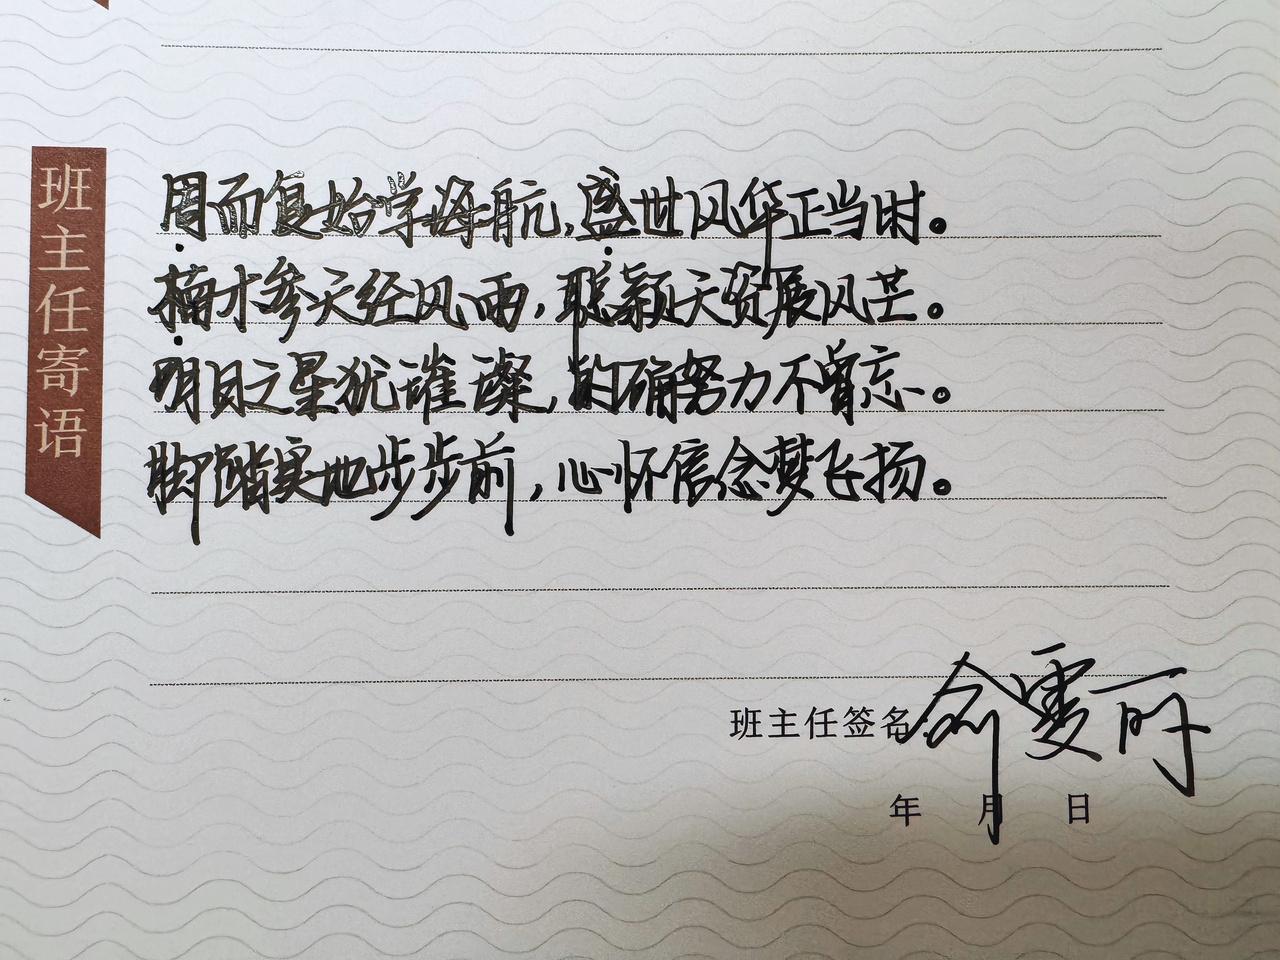 班主任寄语
周而复始学海航，盛世风华正当时。
楠才参天经风雨，聪颖天资展风芒。
明日之星犹璀璨，的确努力不曾忘。
脚踏实地步步前，心怀信念梦飞扬。
班主任签名：俞雯丽
年 月 日